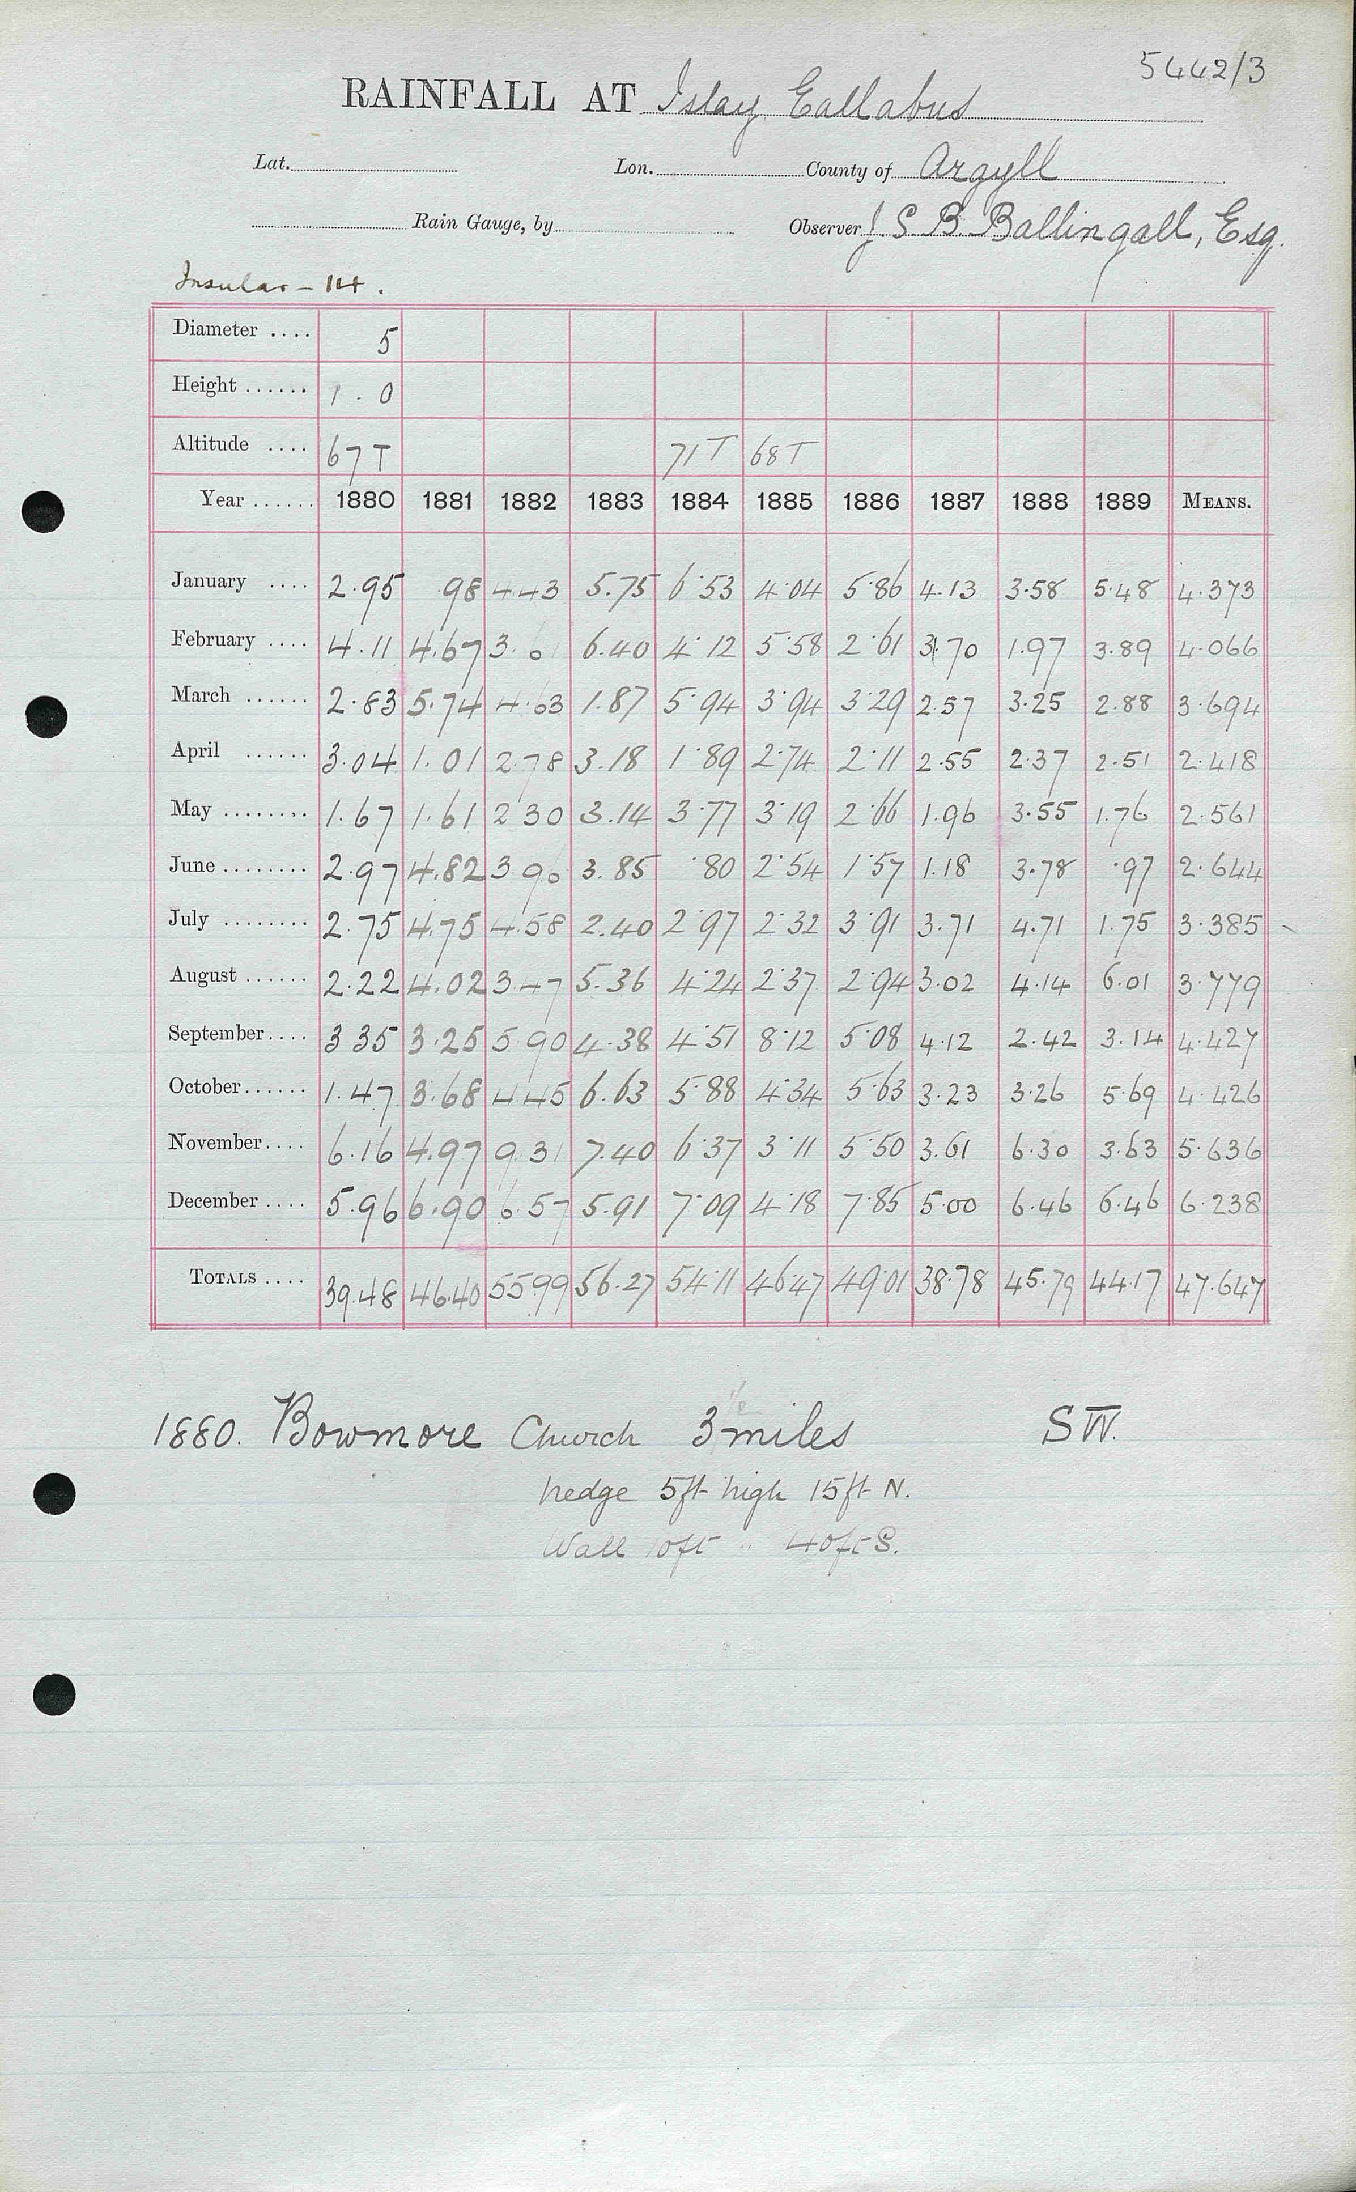 5442/3
RAINFALL AT Islay Eallabus
Lat. Lon. County of Argyll
Rain Gauge, by Observer J S B. Ballingall, Esq.
Insular - 114.
Diameter .... 5
Height ...... 1.0
Altitude .... 67 T 71 T 68 T
Year ...... 1880 1881 1882 1883 1884 1885 1886 1887 1888 1889 MEANS.
January .... 2.95 .98 4.43 5.75 6.53 4.04 5.86 4.13 3.58 5.48 4.373
February .... 4.11 4.67 3.61 6.40 4.12 5.58 2.61 3.70 1.97 3.89 4.066
March ...... 2.83 5.74 4.63 1.87 5.94 3.94 3.29 2.57 3.25 2.88 3.694
April ...... 3.04 1.01 2.78 3.18 1.89 2.74 2.11 2.55 2.37 2.51 2.418
May ........ 1.67 1.61 2 30 3.14 3.77 3.19 2.66 1.96 3.55 1.76 2.561
June ........ 2.97 4.82 3 96 3.85 .80 2.54 1.57 1.18 3.78 .97 2.644
July ........ 2.75 4.75 4.58 2.40 2.97 2.32 3.91 3.71 4.71 1.75 3.385
August ...... 2.22 4.02 3.47 5.36 4.24 2.37 2.94 3.02 4.14 6.01 3.779
September.... 3 35 3.25 5 90 4.38 4.51 8.12 5.08 4.12 2.42 3.14 4.427
October...... 1.47 3.68 4.45 6.63 5.88 4.34 5.63 3.23 3.26 5.69 4.426
November.... 6.16 4.97 9 31 7.40 6.37 3.11 5.50 3.61 6.30 3.63 5.636
December .... 5.96 6.90 6.57 5.91 7.09 4.18 7.85 5.00 6.46 6.46 6.238
TOTALS .... 39.48 46.40 55.99 56.27 54.11 46.47 49.01 38.78 45.79 44.17 47.647
1880. Bowmore Church 3 miles SW.
hedge 5ft high 15ft N.
Wall 10ft " 40ft S.